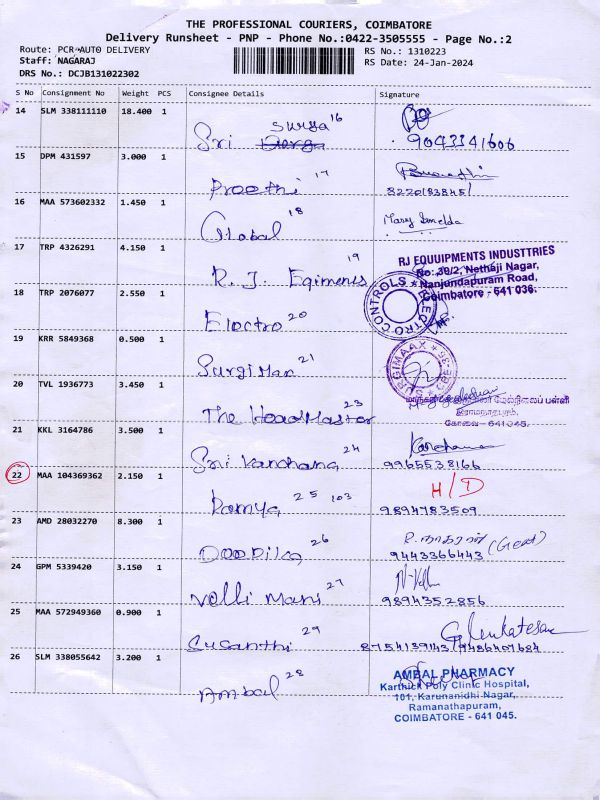 THE PROFESSIONAL COURIERS, COIMBATORE
Delivery Runsheet - PNP - Phone No.:0422-3505555 - Page No.:2
Route: PCR-AUTO DELIVERY RS No.: 1310223
Staff: NAGARAJ RS Date: 24-Jan-2024
DRS No.: DCJB131022302
S No Consignment No Weight PCS Consignee Details Signature
14 SLM 338111110 18.400 1
Surya 16
Sri 9043341606
15 DPM 431597 3.000 1
Preethi 17 8220183845
16 MAA 573602332 1.450 1 Mary Imelda
Global 18
17 TRP 4326291 4.150 1
R.J. Eqiments 19
RJ EQUUIPMENTS INDUSTTRIES
No: 39/2, Nethaji Nagar,
Nanjundapuram Road,
Coimbatore - 641 036.
18 TRP 2076077 2.550 1
Electro 20
ELECTRO CONTROLS
19 KRR 5849368 0.500 1
Surgi Max 21
SURGIMAAX
CBE-36
20 TVL 1936773 3.450 1
The HeadMaster 23
மேல்நிலைப் பள்ளி
இராமநாதபுரம்,
கோவை - 641045.
21 KKL 3164786 3.500 1 Kanchana
Sri Kanchana 24 9965538166
22 MAA 104369362 2.150 1 H/D
Ramya 25 103 9894783509
23 AMD 28032270 8.300 1 R. நாகராஜ் (Gent)
26 9443366443
24 GPM 5339420 3.150 1 N-Velli
Velli Mani 27 9894352856
25 MAA 572949360 0.900 1 G Venkatesan
Susanthi 29 8754139143/9486407684
26 SLM 338055642 3.200 1
Ambal 28
AMBAL PHARMACY
Karthick Poly Clinic Hospital,
101, Karunanidhi Nagar,
Ramanathapuram,
COIMBATORE - 641 045.